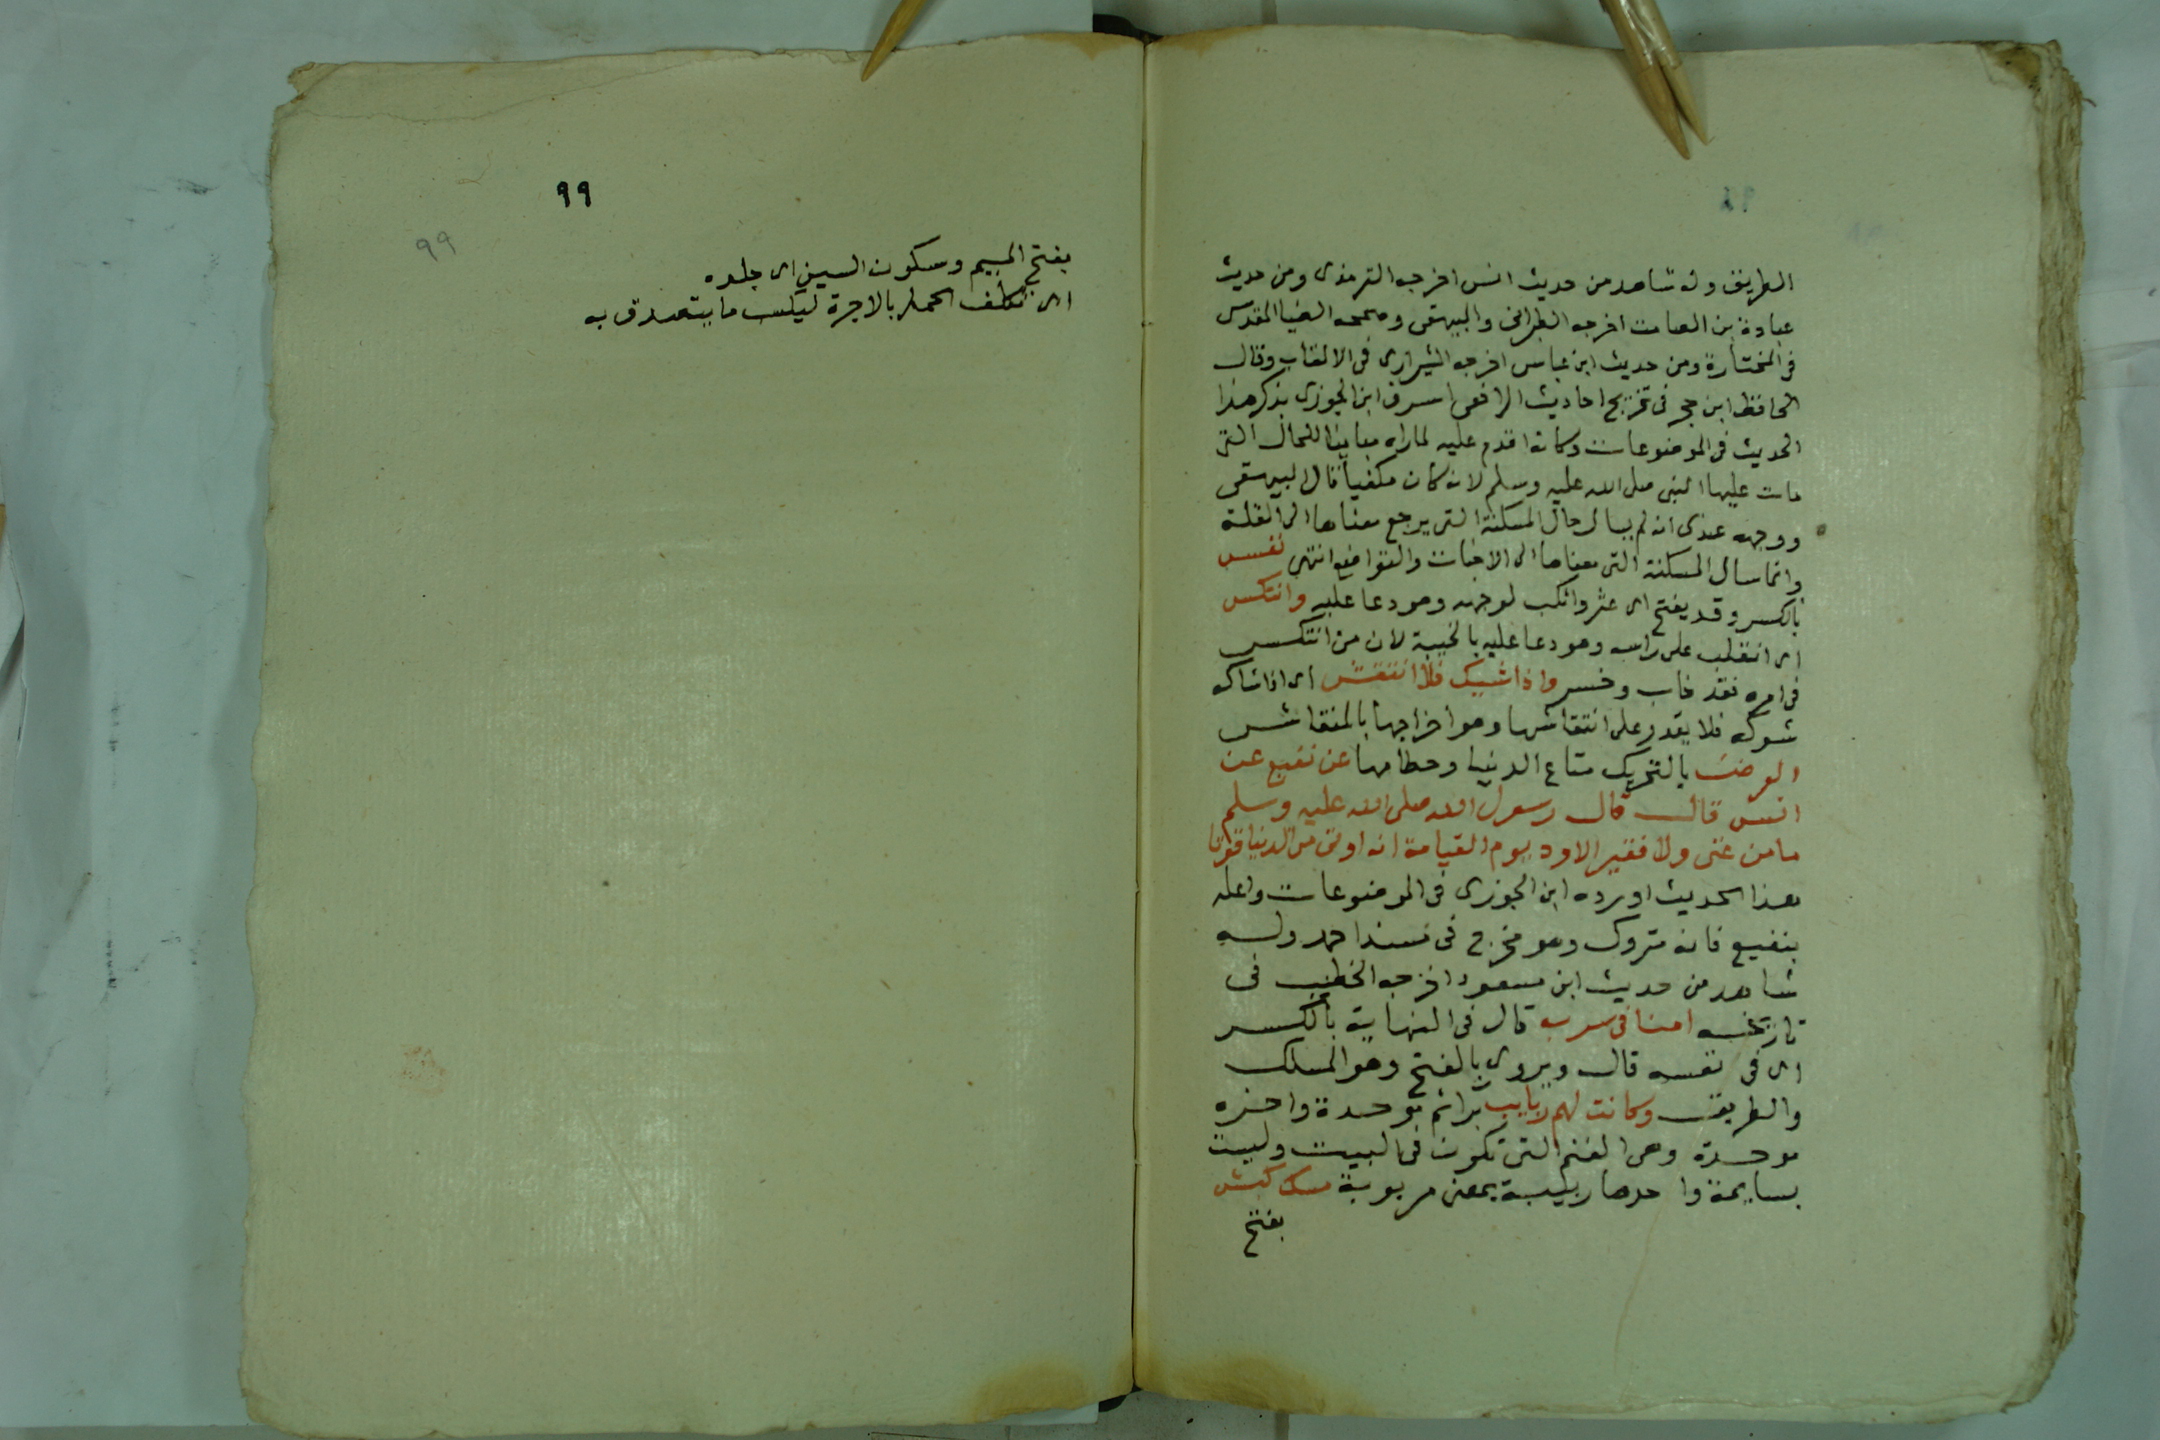 ٩٨
الطريق وله شاهد من حديث انس اخرجه الترمذى ومن حديث
عبادة بن الصامت اخرجه الطبرانى والبيهقى وصححه الضيا المقدسى
فى المختارة ومن حديث ابن عباس اخرجه الشيرازى فى الالقاب وقال
الحافظ ابن حجر فى تخريج احاديث الرافعى اسرف ابن الجوزى بذكر هذا
الحديث فى الموضوعات وكانه اقدم عليه لما راه مباينا للحال التى
مات عليها النبى صلى الله عليه وسلم لانه كان مكفيا قال البيهقى
ووجهه عندى انه لم يسال حال المسكنة التى يرجع معناها الى القلة
وانما سال المسكنة التى معناها الى الاخبات والتواضع انتهى تعس
بالكسر وقد يفتح اى عثر وانكب لوجهه وهو دعا عليه وانتكس
اى انقلب على راسه وهو دعا عليه بالخيبة لان من انتكس
فى امره فقد خاب وخسر واذا شيك فلا انتقش اى اذا شاكه
شوكه فلا يقدر على انتقاشها وهو اخراجها بالمنقاش
العرض بالتحريك متاع الدنيا وحطامها عن نفيع عن
انس قال قال رسول الله صلى الله عليه وسلم
ما من غنى ولا فقير الا ود يوم القيامة انه اوتى من الدنيا قوتا
هذا الحديث اورده ابن الجوزى فى الموضوعات واعله
بنفيع فانه متروك وهو مخرج فى مسند احمد وله
شاهد من حديث ابن مسعود اخرجه الخطيب فى
تاريخه امنا فى سربه قال فى النهاية بالكسر
اى فى نفسه قال ويروى بالفتح وهو المسلك
والطريق وكانت لهم ربايب براثم بوحدة واخره
موحدة وهى الغنم التى تكون فى البيت وليست
بسايمة واحدها ربيبة بمعنى مربوبة مسك كبش
بفتح
٩٩
٩٩
بفتح الميم وسكون السين اى جلده
اى تكلف الحمل بالاجرة ليكسب ما يتصدق به